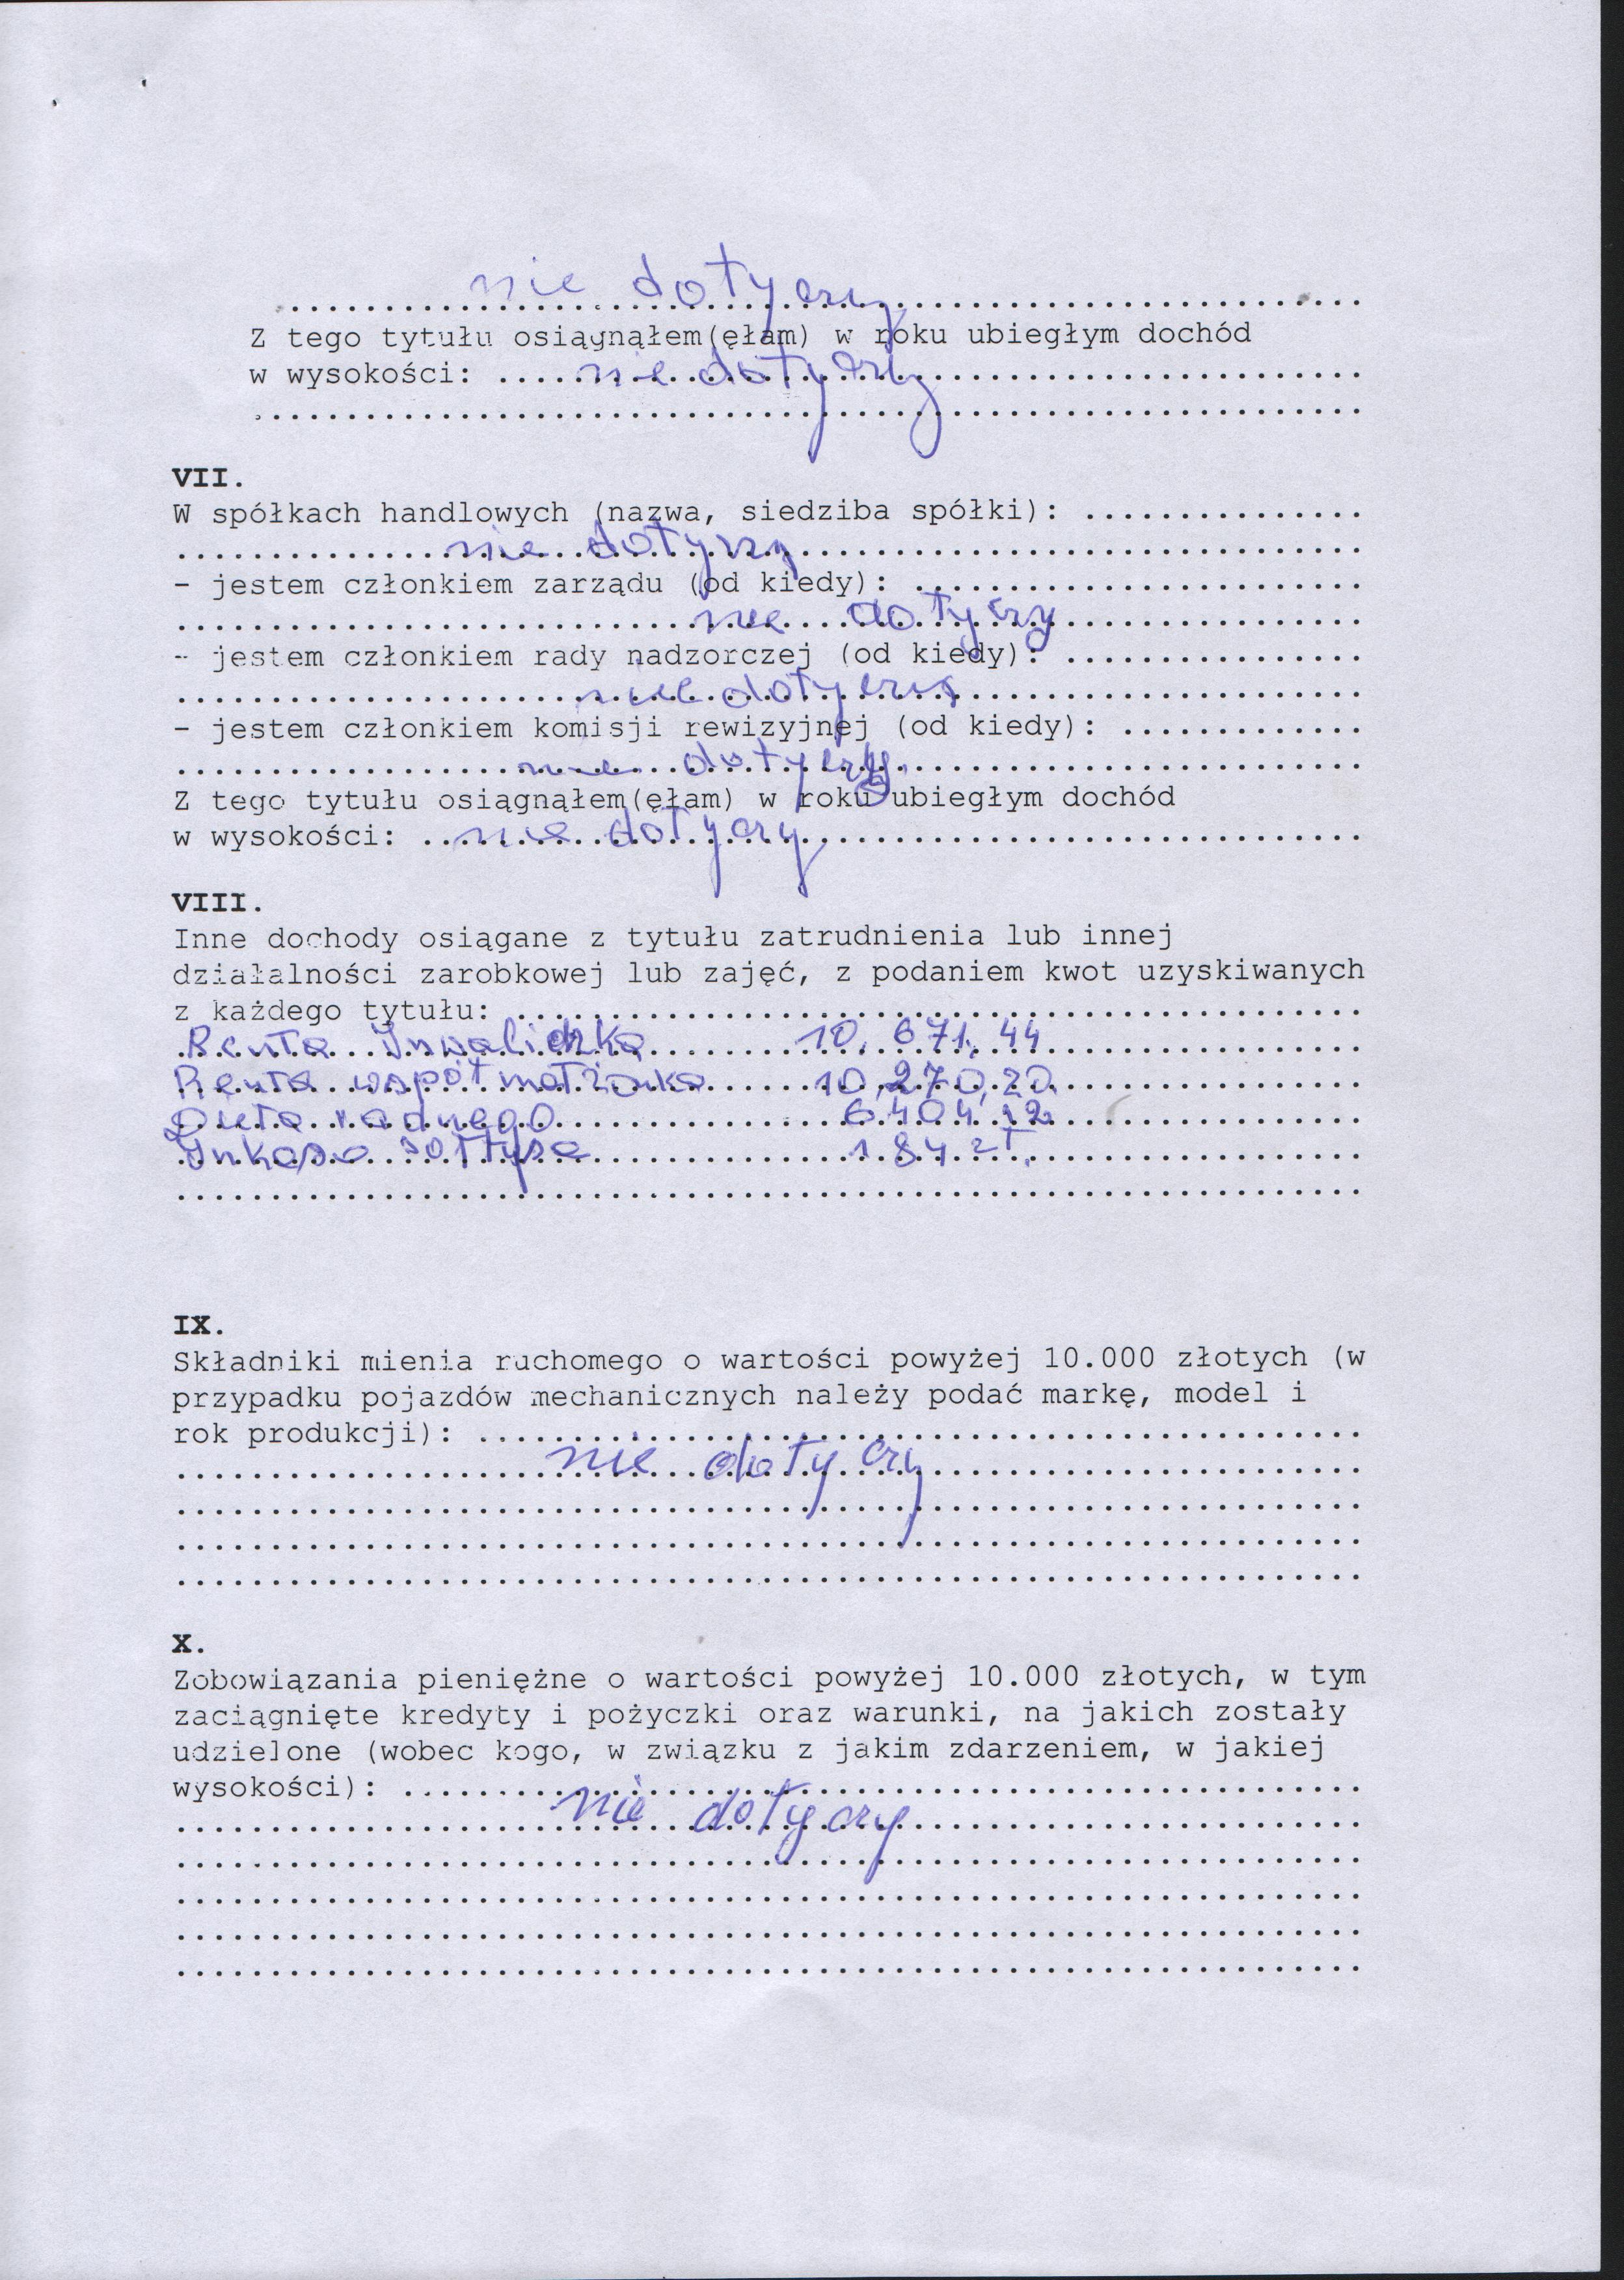 nie dotyczy
Z tego tytułu osiągnąłem(ęłam) w roku ubiegłym dochód
w wysokości: nie dotyczy
VII.
W spółkach handlowych (nazwa, siedziba spółki):
nie dotyczy
- jestem członkiem zarządu (od kiedy):
nie dotyczy
- jestem członkiem rady nadzorczej (od kiedy):
nie dotyczy
- jestem członkiem komisji rewizyjnej (od kiedy):
nie dotyczy
Z tego tytułu osiągnąłem(ęłam) w roku ubiegłym dochód
w wysokości: nie dotyczy
VIII.
Inne dochody osiągane z tytułu zatrudnienia lub innej
działalności zarobkowej lub zajęć, z podaniem kwot uzyskiwanych
z każdego tytułu:
Renta Inwalidzka 10,671,44
Renta współmałżonka 10,270,20
Dieta radnego 6404,12
Inkaso sołtysa 184 zł.
IX.
Składniki mienia ruchomego o wartości powyżej 10.000 złotych (w
przypadku pojazdów mechanicznych należy podać markę, model i
rok produkcji):
nie dotyczy
X.
Zobowiązania pieniężne o wartości powyżej 10.000 złotych, w tym
zaciągnięte kredyty i pożyczki oraz warunki, na jakich zostały
udzielone (wobec kogo, w związku z jakim zdarzeniem, w jakiej
wysokości):
nie dotyczy